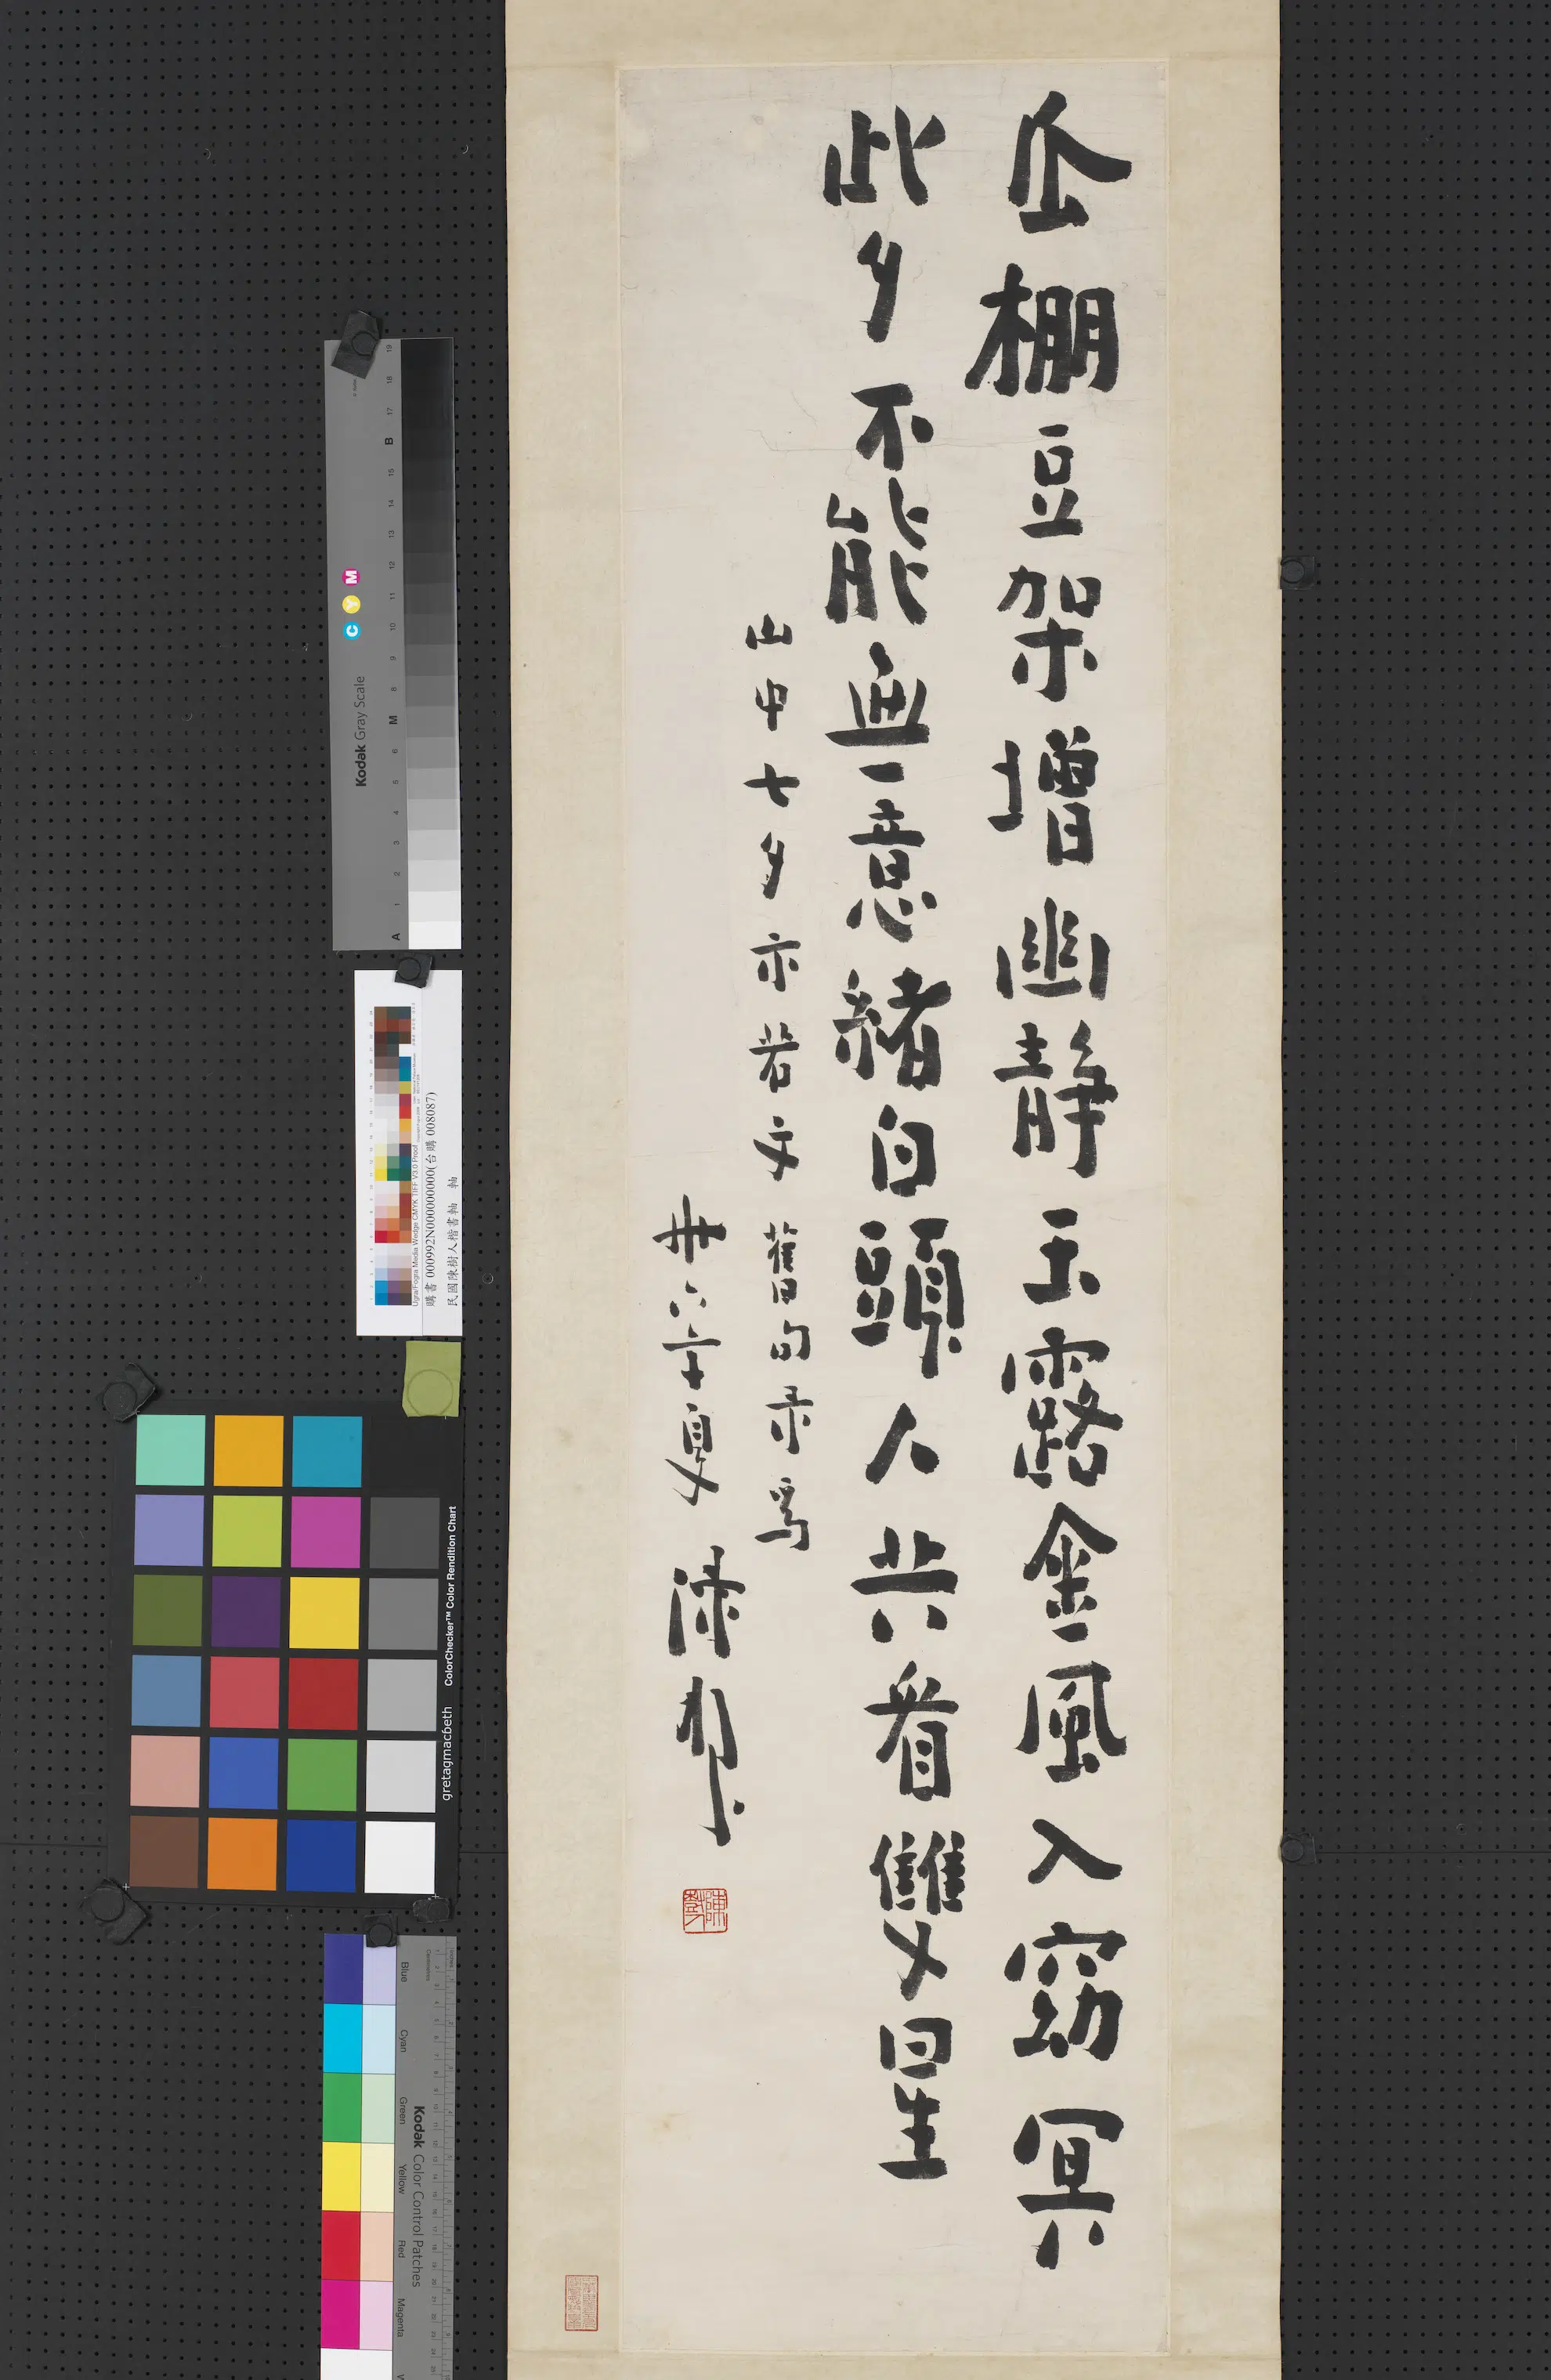 瓜棚豆架增幽靜玉露金風入窈冥
此夕不能無意緒白頭人共看雙星
山中七夕示若文舊句录爲
卅六年夏 陳樹人
陳樹
購書 000992N000000000(台購 008087)
民國陳樹人楷書軸 軸
Kodak Gray Scale
C Y M
A 1 2 3 4 5 6 M 8 9 10 11 12 13 14 15 B 17 18 19
Ugra/Fogra Media Wedge CMYK TIFF V3.0 Proof
ColorChecker™ Color Rendition Chart
gretagmacbeth
Kodak Color Control Patches
Blue
Cyan
Green
Yellow
Red
Magenta